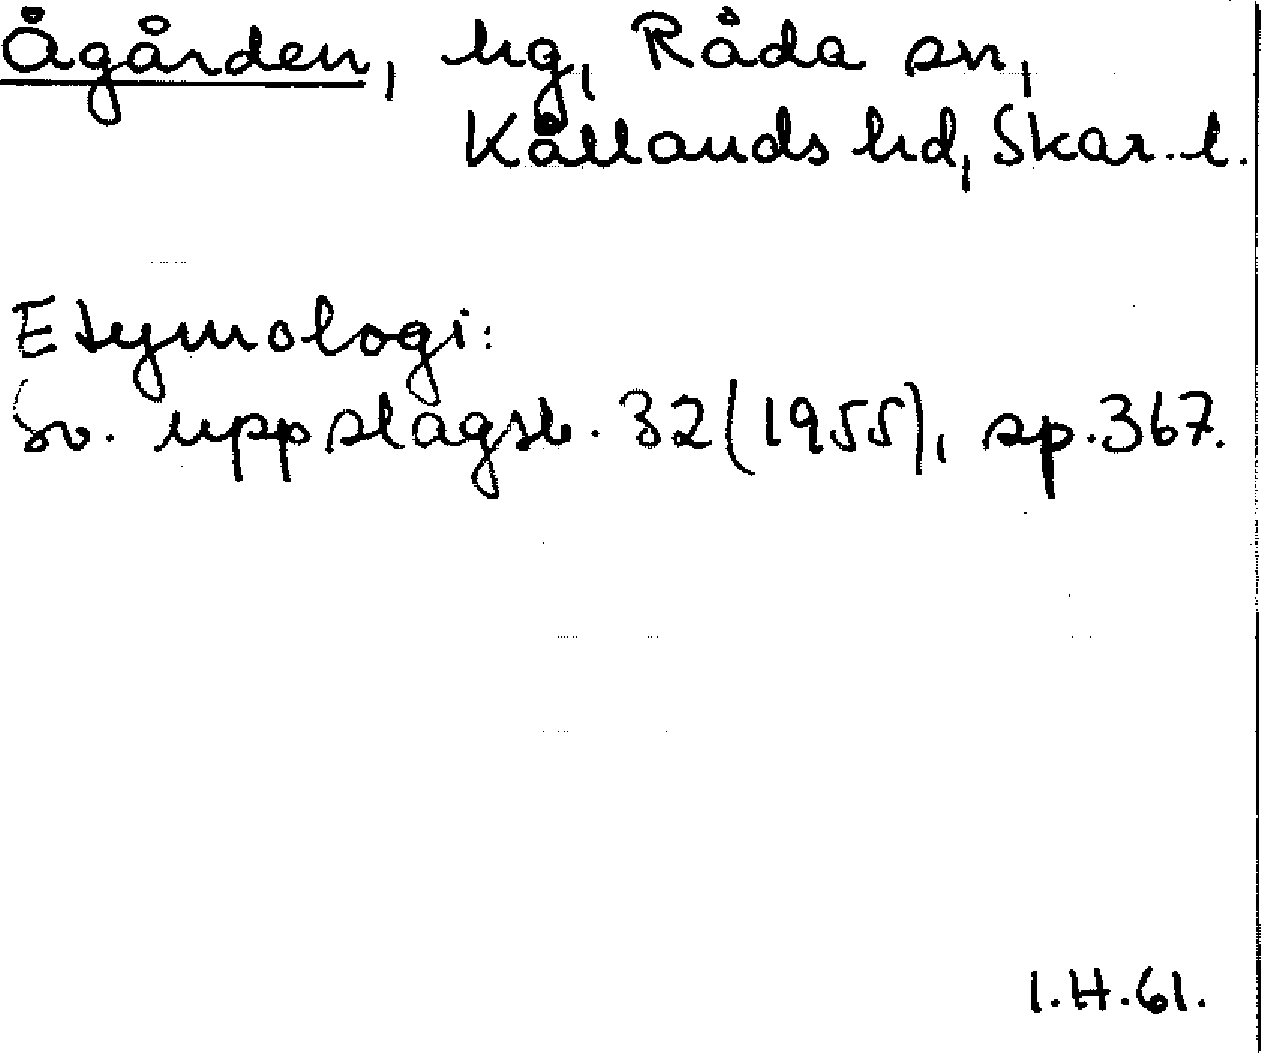 Ågården, hg, Råda sn,
Kållands hd, Skar. l.
Etymologi:
Sv. uppslagsb. 32 (1955), sp. 367.
I.H.61.